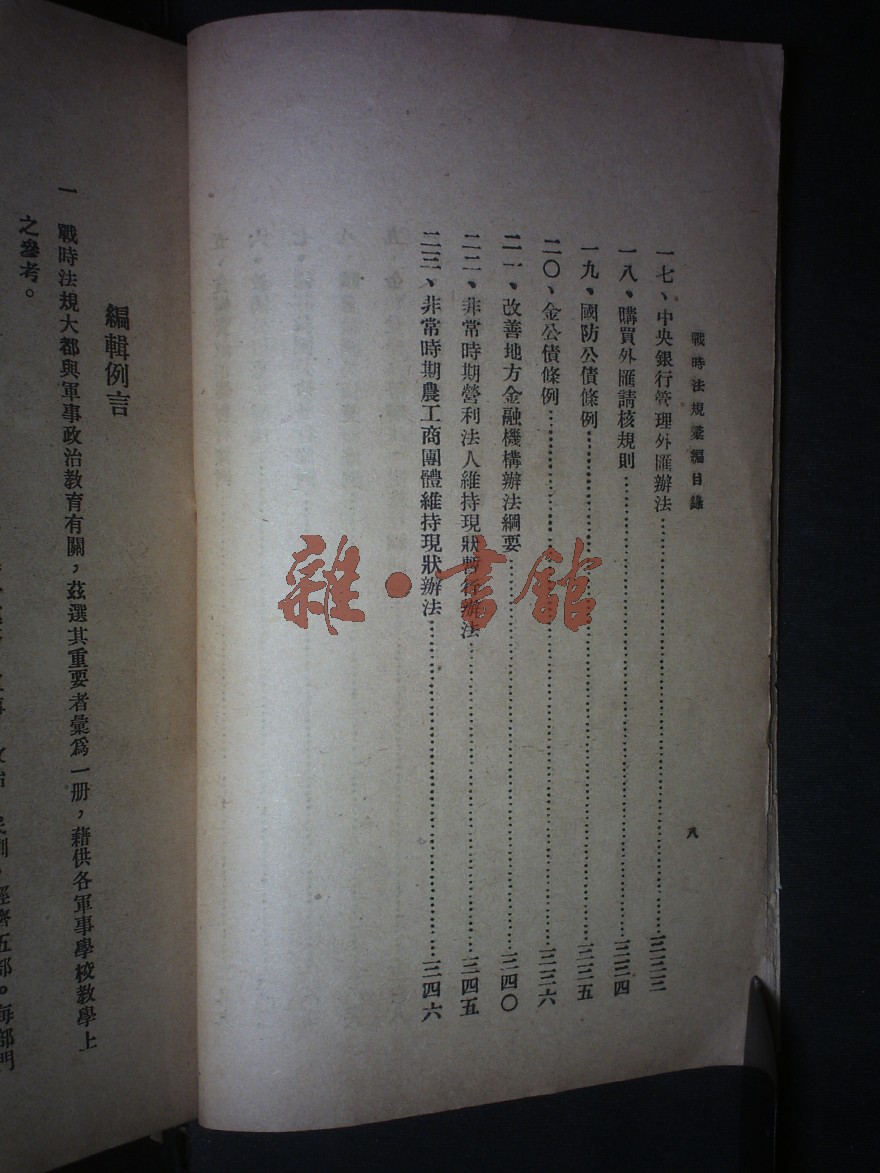 戰時法規彙編目錄
八
一七、中央銀行管理外匯辦法……三三三
一八、購買外匯請核規則……三三四
一九、國防公債條例……三三五
二〇、金公債條例……三三六
二一、改善地方金融機構辦法綱要……三四〇
二二、非常時期營利法人維持現狀暫行辦法……三四五
二三、非常時期農工商團體維持現狀辦法……三四六
雜·書館
編輯例言
一 戰時法規大都與軍事政治教育有關，茲選其重要者彙爲一册，藉供各軍事學校教學上
之參考。
經濟五部。每部門